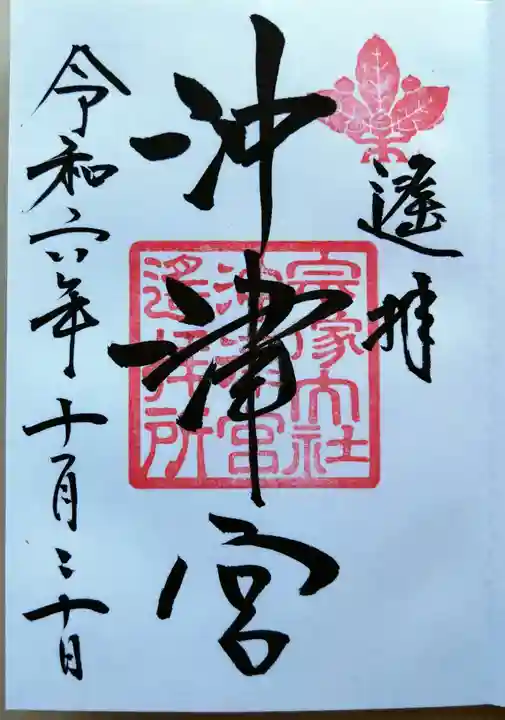 遥拝
沖津宮
宗像大社
沖津宮
遥拝所
令和六年十月三十日